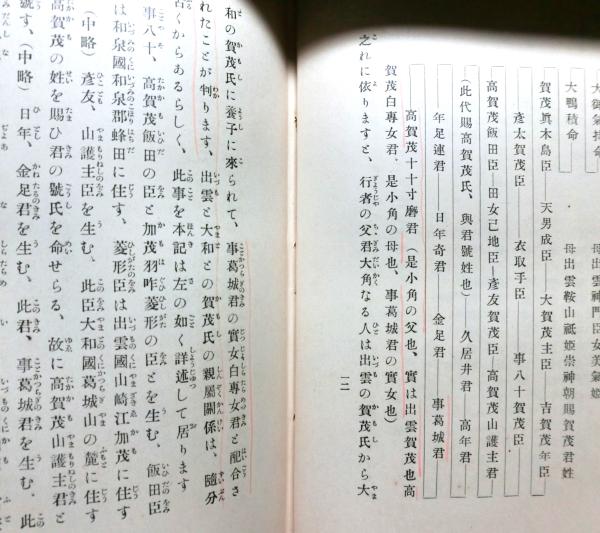 大御氣持命　母出雲神門臣女美氣姫
大鴨積命　母出雲鞍山祇姫崇神朝賜賀茂君姓
賀茂眞木島臣　天男成臣　大賀茂主臣　吉賀茂年臣
彦太賀茂臣　衣取手臣　事八十賀茂臣
高賀茂飯田臣―田女己地臣―彦友賀茂臣―高賀茂山護主君
（此代賜高賀茂氏、與君號姓也）　久居井君　高年君
年足連君　日年奇君　金足君　事葛城君
高賀茂十十寸磨君（是小角の父也、實は出雲賀茂也高
賀茂白專女君、是小角の母也、事葛城君の實女也）
之れに依りますと、行者の父君大角なる人は出雲の賀茂氏から大
一二
和の賀茂氏に養子に來られて、事葛城君の實女白專女君と配合さ
れたことが判ります、出雲と大和との賀茂氏の親屬關係は、隨分
古くからあるらしく、此事を本記は左の如く詳述して居ります
事八十、高賀茂飯田の臣と加茂羽咋菱形の臣とを生む、飯田臣
は和泉國和泉郡蜂田に住す、菱形臣は出雲國山崎江加茂に住す
（中略）彦友、山護主臣を生む、此臣大和國葛城山の麓に住す
高賀茂の姓を賜ひ君の號氏を命せらる、故に高賀茂山護主君と
號す、（中略）日年、金足君を生む、此君、事葛城君を生む、此